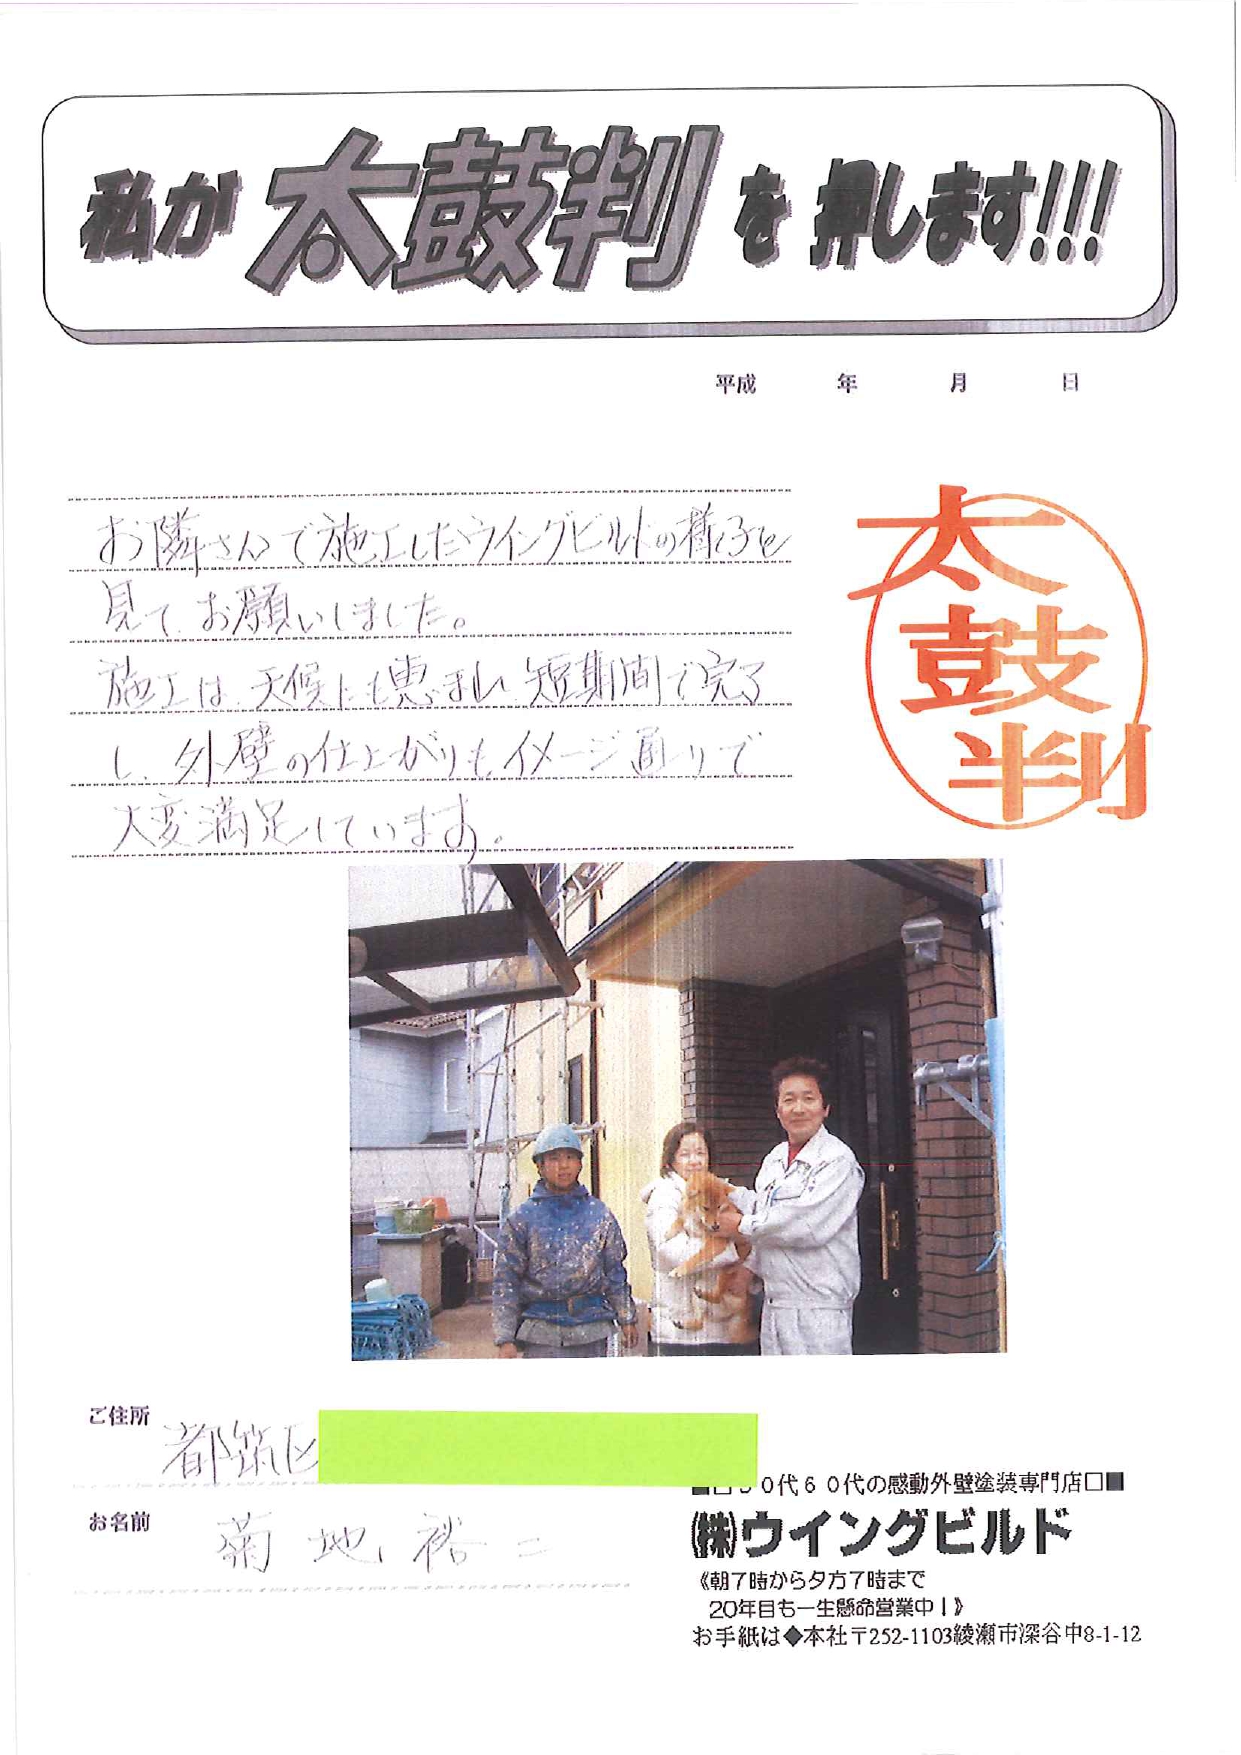 私が太鼓判を押します!!!
平成 年 月 日
お隣さんで施工したウイングビルドの様子を
見て、お願いしました。
施工は、天候にも恵まれ、短期間で完了
し、外壁の仕上がりもイメージ通りで
大変満足しています。
太鼓判
ご住所
都筑区
0代60代の感動外壁塗装専門店□■
お名前
菊地 裕二
㈱ウイングビルド
《朝7時から夕方7時まで
20年目も一生懸命営業中!》
お手紙は◆本社〒252-1103綾瀬市深谷中8-1-12